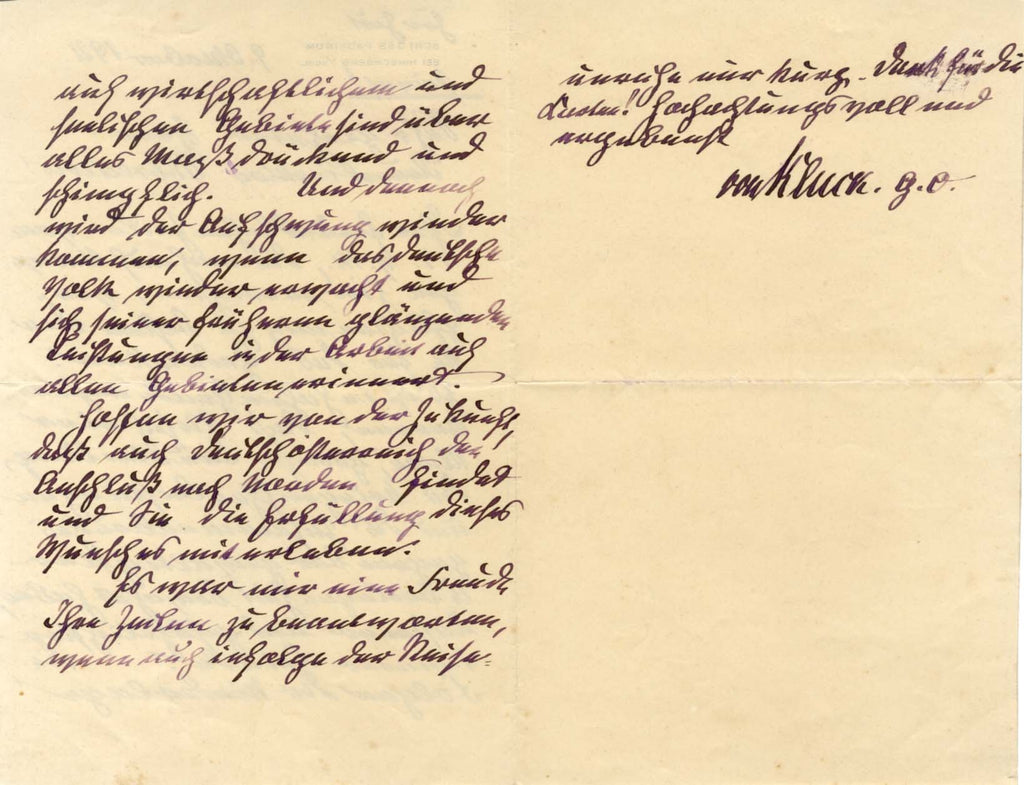 auf wirtschaftlichem und
seelischen Gebiete sind über
alles Maß drückend und
schimpflich. Und dennoch
wird der Aufschwung wieder
kommen, wenn das deutsche
Volk wieder erwacht und
sich seiner früheren glänzenden
Leistungen in der Arbeit auf
allen Gebieten erinnert.
Hoffen wir von der Zukunft,
daß auch Deutschösterreich den
Anschluß nach Norden findet
und Sie die Erfüllung dieses
Wunsches miterleben.
Es war mir eine Freude
Ihre Zeilen zu beantworten,
wenn auch infolge der Reise-
unruhe nur kurz. Dank für die
Karten! Hochachtungsvoll und
ergebenst
von Kluck. G.O.